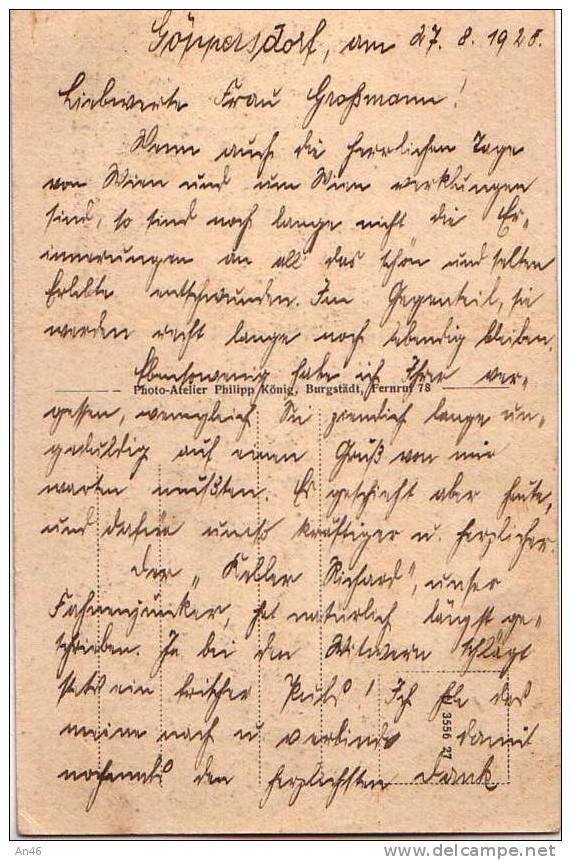 Göppersdorf, am 27. 8. 1928.
Liebwerte Frau Großmann!
Wenn auch die herrlichen Tage
von Wien und um Wien verklungen
sind, so sind noch lange nicht die Er-
innerungen an all das schön und selten
Erlebte entschwunden. Im Gegenteil, sie
werden recht lange noch lebendig bleiben.
Ebensowenig habe ich Ihrer ver-
Photo-Atelier Philipp König, Burgstädt, Fernruf 78
gessen, wenngleich Sie ziemlich lange un-
geduldig auf einen Gruß von mir
warten mußten. Es geschieht aber heute,
und dafür umso kräftiger u. herzlicher.
Der „Keller Richard", unser
Fahnenjunker, hat natürlich längst ge-
schrieben. Ja bei den Witwern schlägt
stets ein frischer Puls! Ich hole das
meine nach u verbinde damit
nochmals den herzlichsten Dank
3556 27
An46
delcampe.net